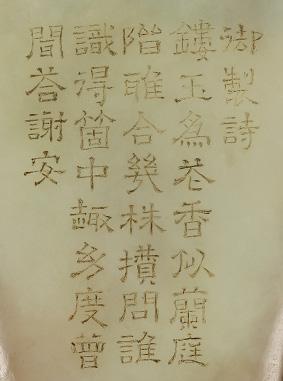 御製詩
鏤玉為芲香似蘭庭
階雅合幾株攢問誰
識得箇中趣幼度曾
聞荅謝安